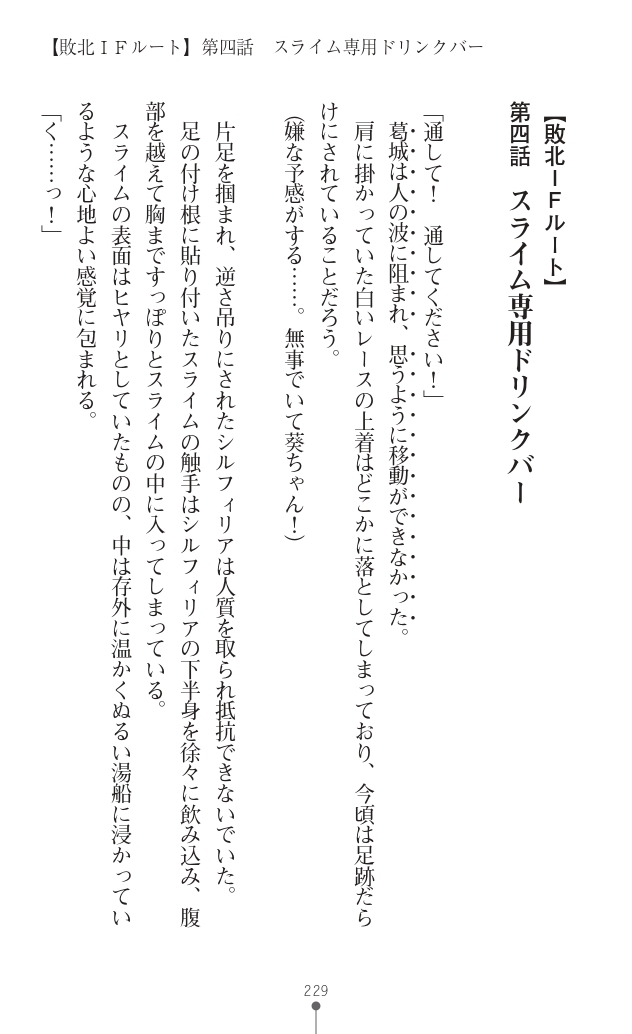 【敗北ＩＦルート】第四話　スライム専用ドリンクバー
【敗北ＩＦルート】
第四話　スライム専用ドリンクバー
「通して！　通してください！」
葛城は人の波に阻まれ、思うように移動ができなかった。
肩に掛かっていた白いレースの上着はどこかに落としてしまっており、今頃は足跡だら
けにされていることだろう。
（嫌な予感がする……。無事でいて葵ちゃん！）
片足を掴まれ、逆さ吊りにされたシルフィリアは人質を取られ抵抗できないでいた。
足の付け根に貼り付いたスライムの触手はシルフィリアの下半身を徐々に飲み込み、腹
部を越えて胸まですっぽりとスライムの中に入ってしまっている。
スライムの表面はヒヤリとしていたものの、中は存外に温かくぬるい湯船に浸かってい
るような心地よい感覚に包まれる。
「く……っ！」
229